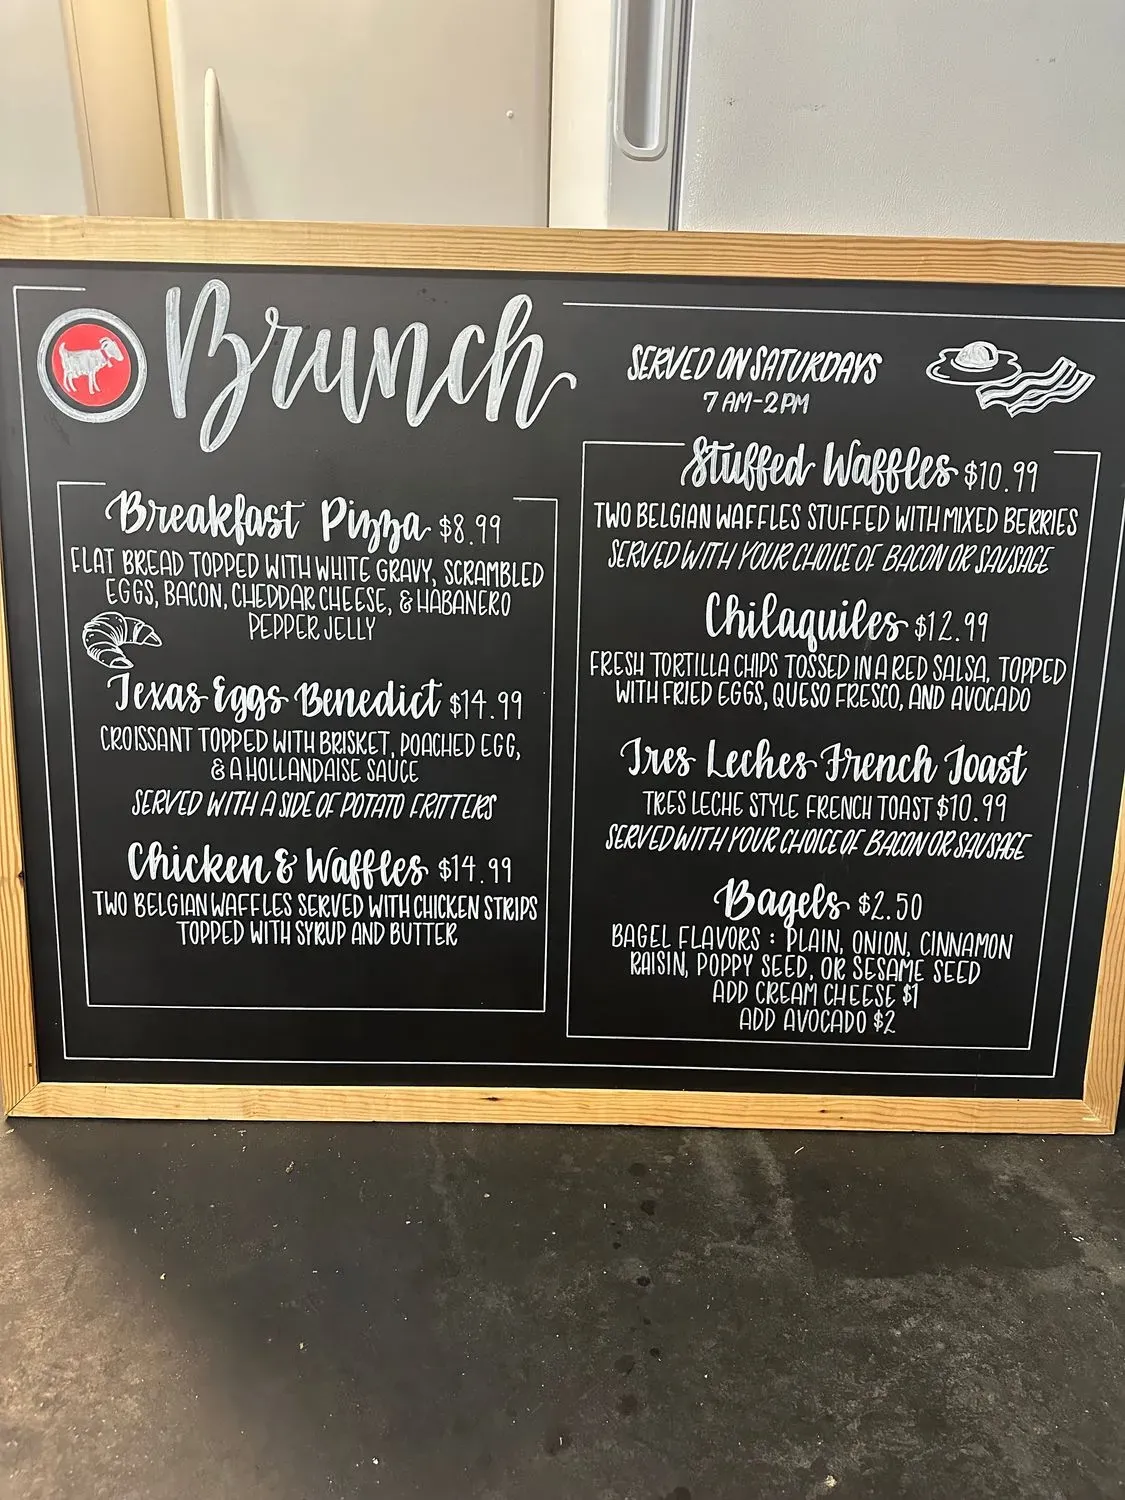 Brunch
SERVED ON SATURDAYS
7 AM-2PM
Breakfast Pizza $8.99
FLAT BREAD TOPPED WITH WHITE GRAVY, SCRAMBLED
EGGS, BACON, CHEDDAR CHEESE, & HABANERO
PEPPER JELLY
Texas Eggs Benedict $14.99
CROISSANT TOPPED WITH BRISKET, POACHED EGG,
& A HOLLANDAISE SAUCE
SERVED WITH A SIDE OF POTATO FRITTERS
Chicken & Waffles $14.99
TWO BELGIAN WAFFLES SERVED WITH CHICKEN STRIPS
TOPPED WITH SYRUP AND BUTTER
Stuffed Waffles $10.99
TWO BELGIAN WAFFLES STUFFED WITH MIXED BERRIES
SERVED WITH YOUR CHOICE OF BACON OR SAUSAGE
Chilaquiles $12.99
FRESH TORTILLA CHIPS TOSSED IN A RED SALSA, TOPPED
WITH FRIED EGGS, QUESO FRESCO, AND AVOCADO
Tres Leches French Toast
TRES LECHE STYLE FRENCH TOAST $10.99
SERVED WITH YOUR CHOICE OF BACON OR SAUSAGE
Bagels $2.50
BAGEL FLAVORS : PLAIN, ONION, CINNAMON
RAISIN, POPPY SEED, OR SESAME SEED
ADD CREAM CHEESE $1
ADD AVOCADO $2